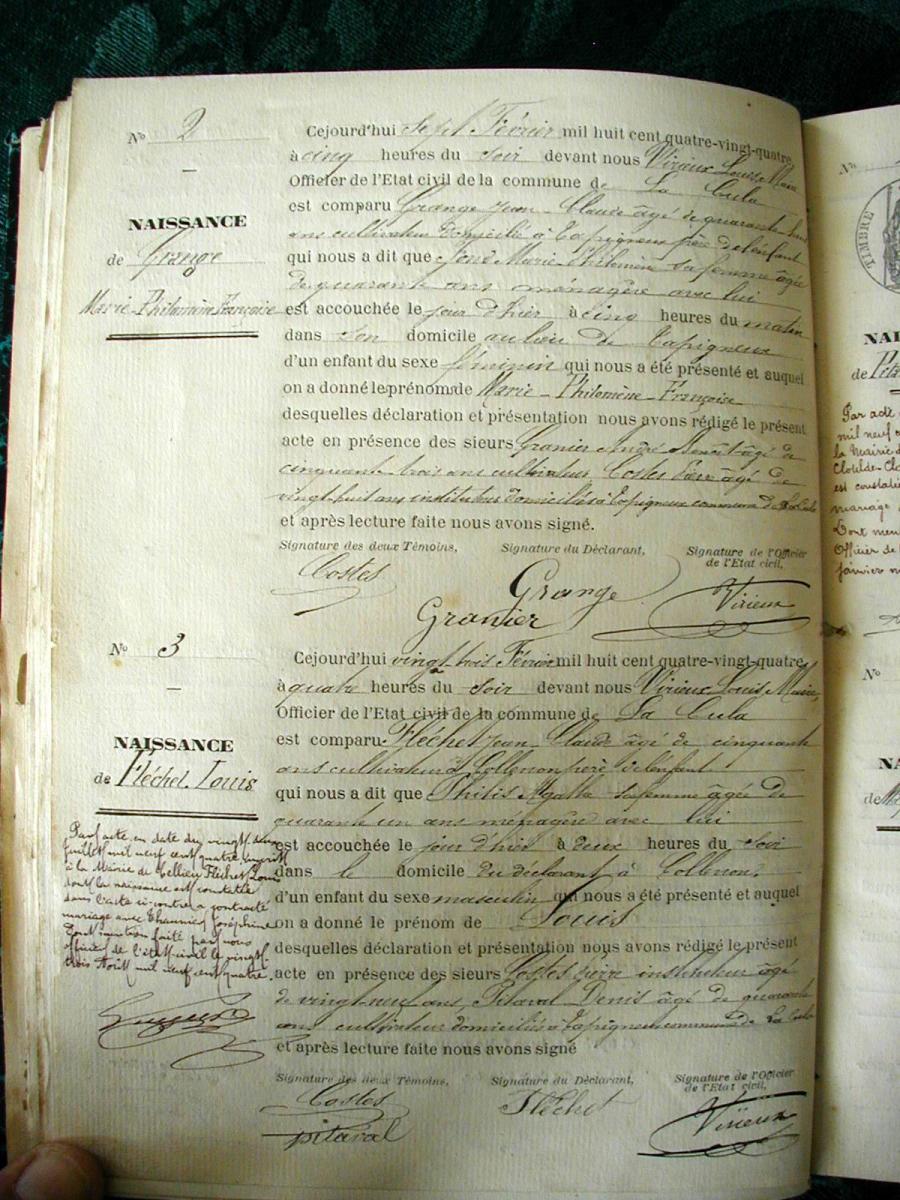 N° 2
NAISSANCE
de Grange
Marie-Philomène-Françoise
Cejourd'hui sept Février mil huit cent quatre-vingt-quatre
à cinq heures du soir devant nous Virieux Louis, Maire
Officier de l'Etat civil de la commune de La Cula
est comparu Grange Jean-Claude âgé de quarante
ans cultivateur domicilié à Tapigneux père de l'enfant
qui nous a dit que Marie Philomène sa femme âgée
de quarante ans ménagère avec lui
est accouchée le jour d'hier à cinq heures du matin
dans son domicile au lieu de Tapigneux
d'un enfant du sexe féminin qui nous a été présenté et auquel
on a donné le prénom de Marie-Philomène-Françoise
desquelles déclaration et présentation nous avons rédigé le présent
acte en présence des sieurs Granier André Benoît âgé de
cinquante trois ans cultivateur Costes Pierre âgé de
vingt-huit ans instituteur domiciliés à Tapigneux commune de La Cula
et après lecture faite nous avons signé.
Signature des deux Témoins, Signature du Déclarant, Signature de l'Officier de l'Etat civil,
Costes Grange Virieux
Granier
N° 3
NAISSANCE
de Fléchet Louis
Par acte en date du vingt
juillet mil neuf cent quatre
à la Mairie de Cellieu Fléchet Louis
dont la naissance est constatée
dans l'acte ci-contre a contracté
mariage avec Joséphine
Dont mention faite par nous
officier de l'état civil le vingt
trois Août mil neuf cent quatre.
Cejourd'hui vingt trois Février mil huit cent quatre-vingt-quatre
à quatre heures du soir devant nous Virieux Louis, Maire,
Officier de l'Etat civil de la commune de La Cula
est comparu Fléchet Jean-Claude âgé de cinquante
ans cultivateur à Collenon père de l'enfant
qui nous a dit que Philis Agathe sa femme âgée de
quarante un ans ménagère avec lui
est accouchée le jour d'hier à deux heures du soir
dans le domicile du déclarant à Collenon
d'un enfant du sexe masculin qui nous a été présenté et auquel
on a donné le prénom de Louis
desquelles déclaration et présentation nous avons rédigé le présent
acte en présence des sieurs Costes Pierre instituteur âgé
de vingt-neuf ans, Pitaval Denis âgé de quarante
ans cultivateur domiciliés à Tapigneux commune de La Cula
et après lecture faite nous avons signé
Signature des deux Témoins, Signature du Déclarant, Signature de l'Officier de l'Etat civil,
Costes Fléchet Virieux
pitaval
TIMBRE
Par acte
mil neuf
la Mairie
est constatée
mariage
Dont
Officier de
janvier
N°